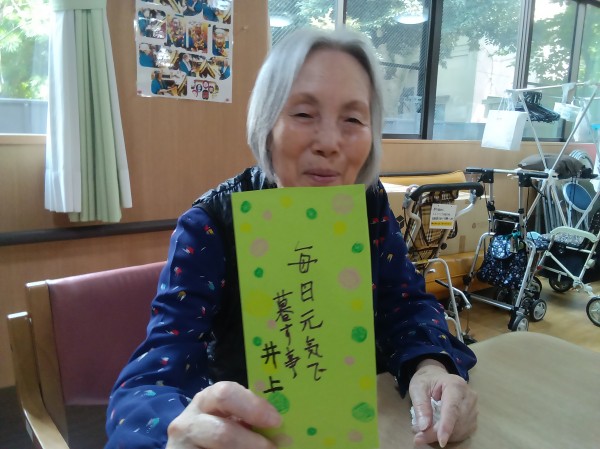 毎日元気で
暮す事
井上